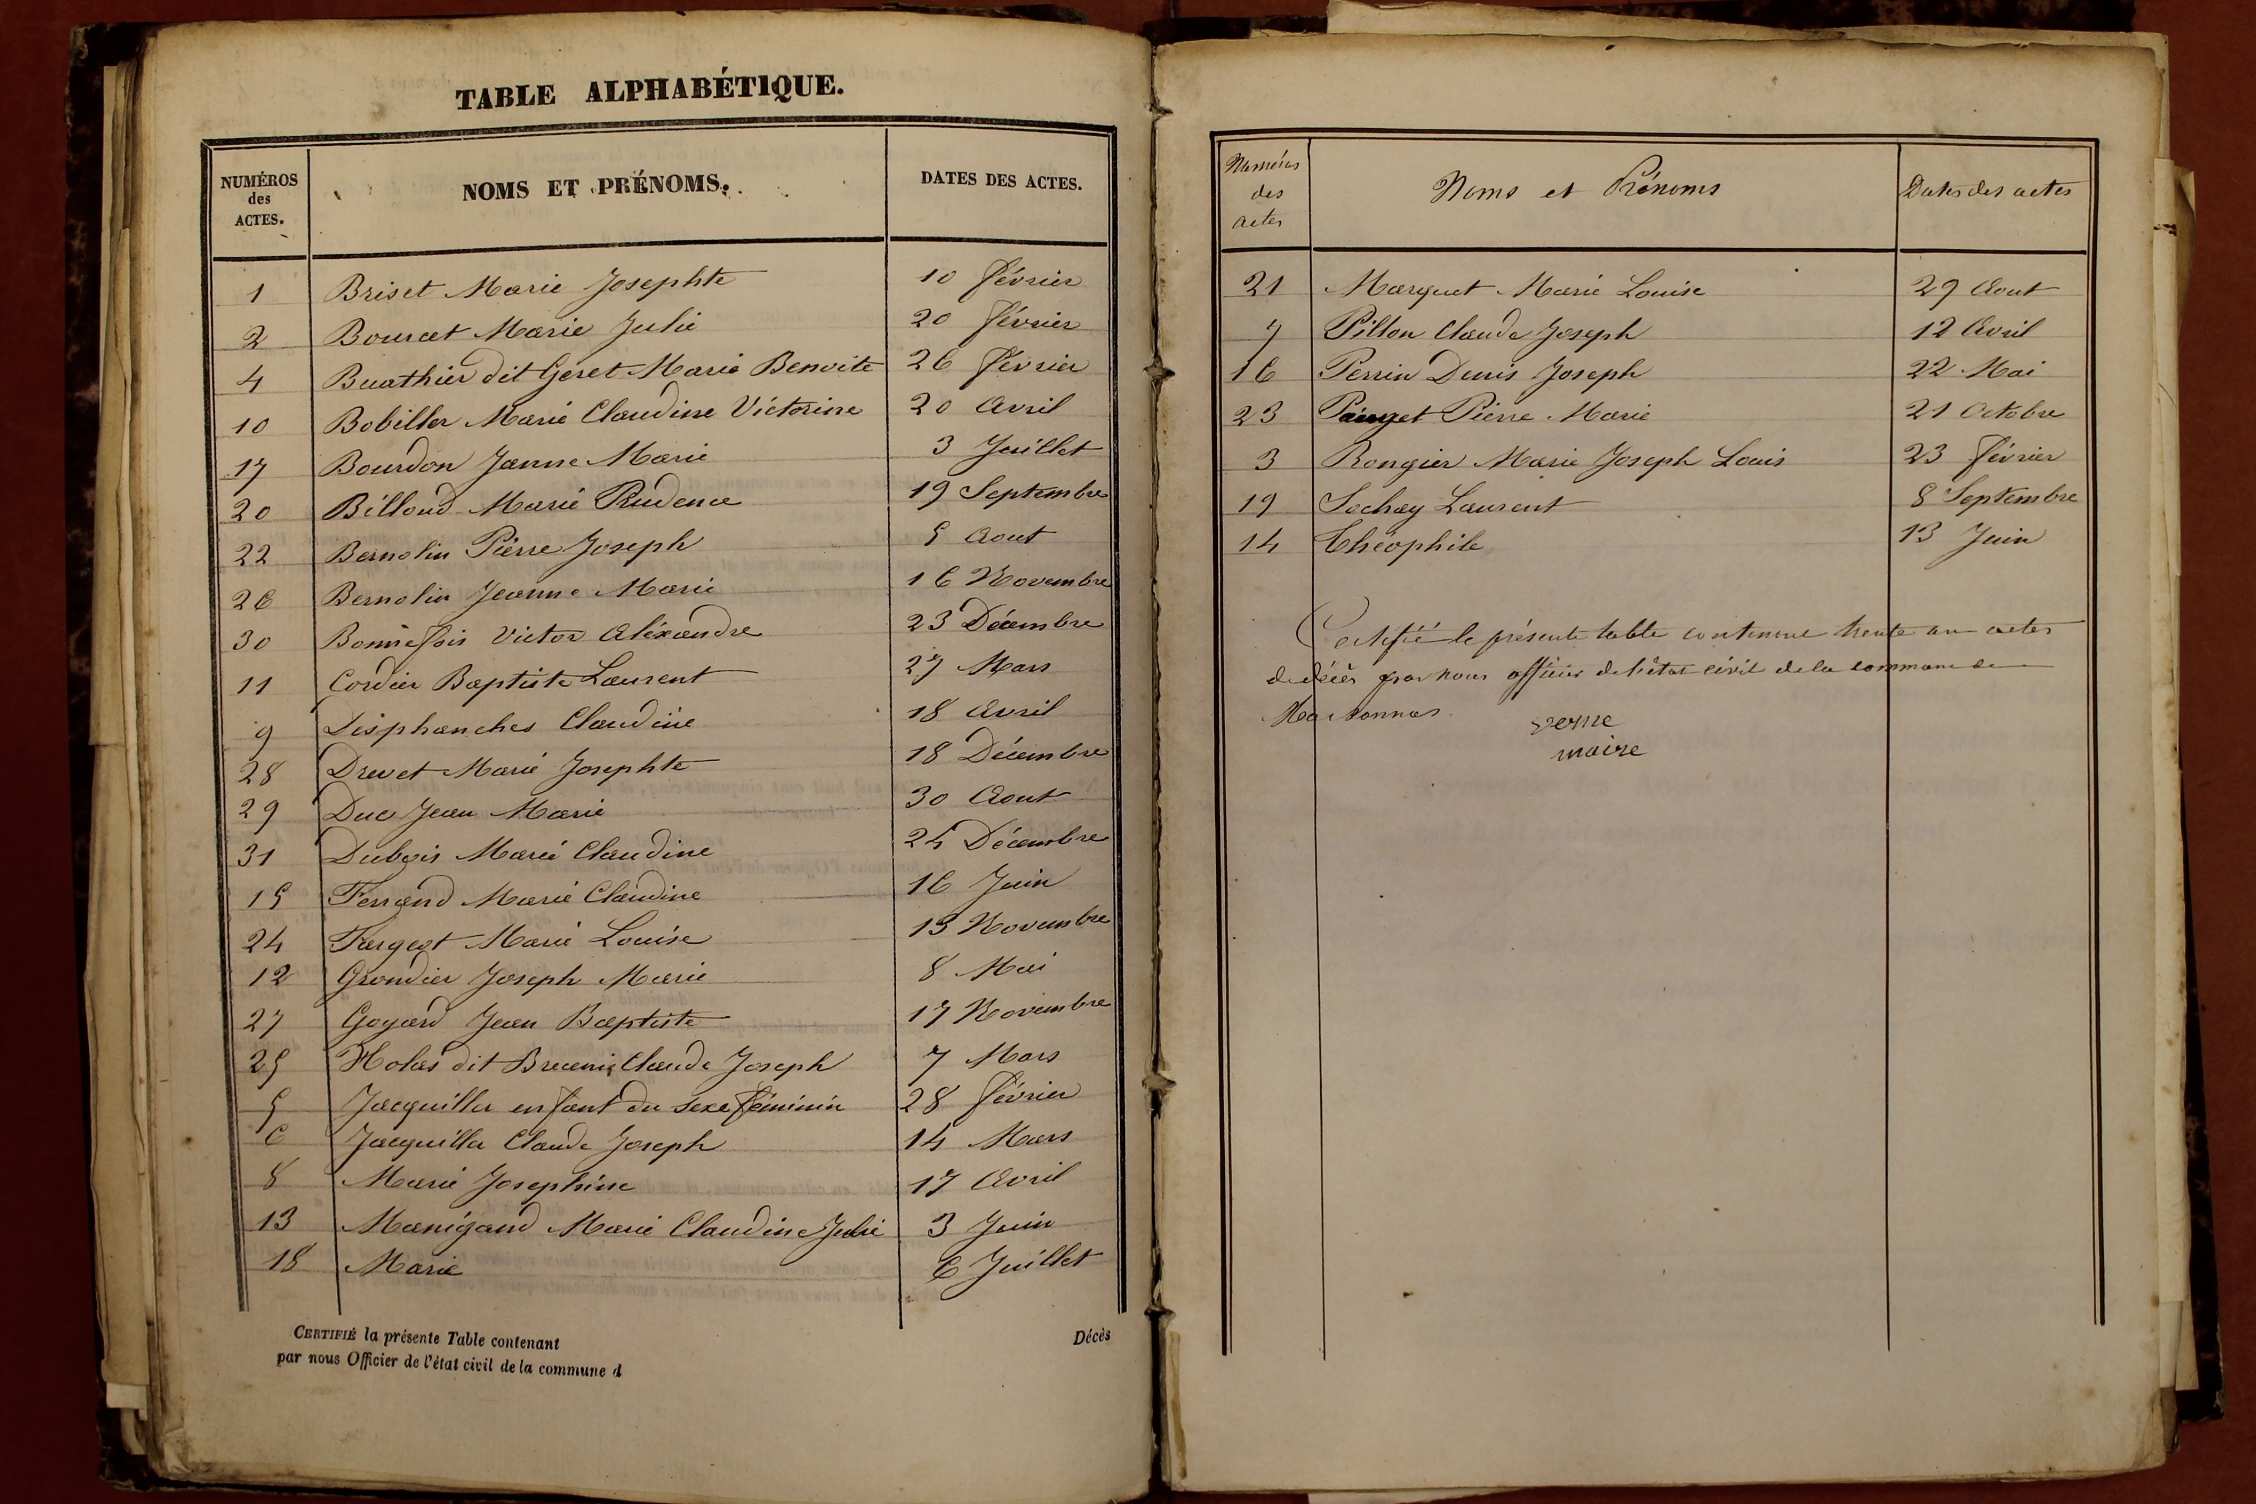 TABLE ALPHABÉTIQUE.
NUMÉROS des ACTES. NOMS ET PRÉNOMS. DATES DES ACTES.
1 Briset Marie Josephte 10 février
2 Bourcet Marie Julie 20 février
4 Buathier dit Geret Marie Benoite 26 février
10 Bobiller Marie Claudine Victorine 20 Avril
17 Bourdon Janne Marie 3 Juillet
20 Billoud Marie Prudence 19 Septembre
22 Bernolin Pierre Joseph 5 Aout
26 Bernolin Jeanne Marie 16 Novembre
30 Bonnefois Victor Aléxandre 23 Décembre
11 Cordier Baptiste Laurent 27 Mars
9 Desphanches Claudine 18 Avril
28 Drevet Marie Josephte 18 Décembre
29 Duc Jean Marie 30 Aout
31 Dubois Marie Claudine 25 Décembre
15 Ferrand Marie Claudine 16 Juin
24 Fargeot Marie Louise 13 Novembre
12 Grondier Joseph Marie 8 Mai
27 Goyard Jean Baptiste 17 Novembre
25 Holas dit Claude Joseph 7 Mars
5 Jacquiller enfant du sexe féminin 28 février
6 Jacquiller Claude Joseph 14 Mars
8 Marie Josephine 17 Avril
13 Manigand Marie Claudine Julie 3 Juin
18 Marie 6 Juillet
CERTIFIÉ la présente Table contenant Décès
par nous Officier de l'état civil de la commune d
Numéros des actes Noms et Prénoms Dates des actes
21 Marguet Marie Louise 29 Aout
7 Pillon Claude Joseph 12 Avril
16 Perrin Denis Joseph 22 Mai
23 Pauget Pierre Marie 21 Octobre
3 Rongier Marie Joseph Louis 23 février
19 Sochay Laurent 8 Septembre
14 Théophile 13 Juin
Certifié le présente table contenant trente un actes
de décès par nous officier de l'état civil de la commune de
Marsonnas
verne
maire